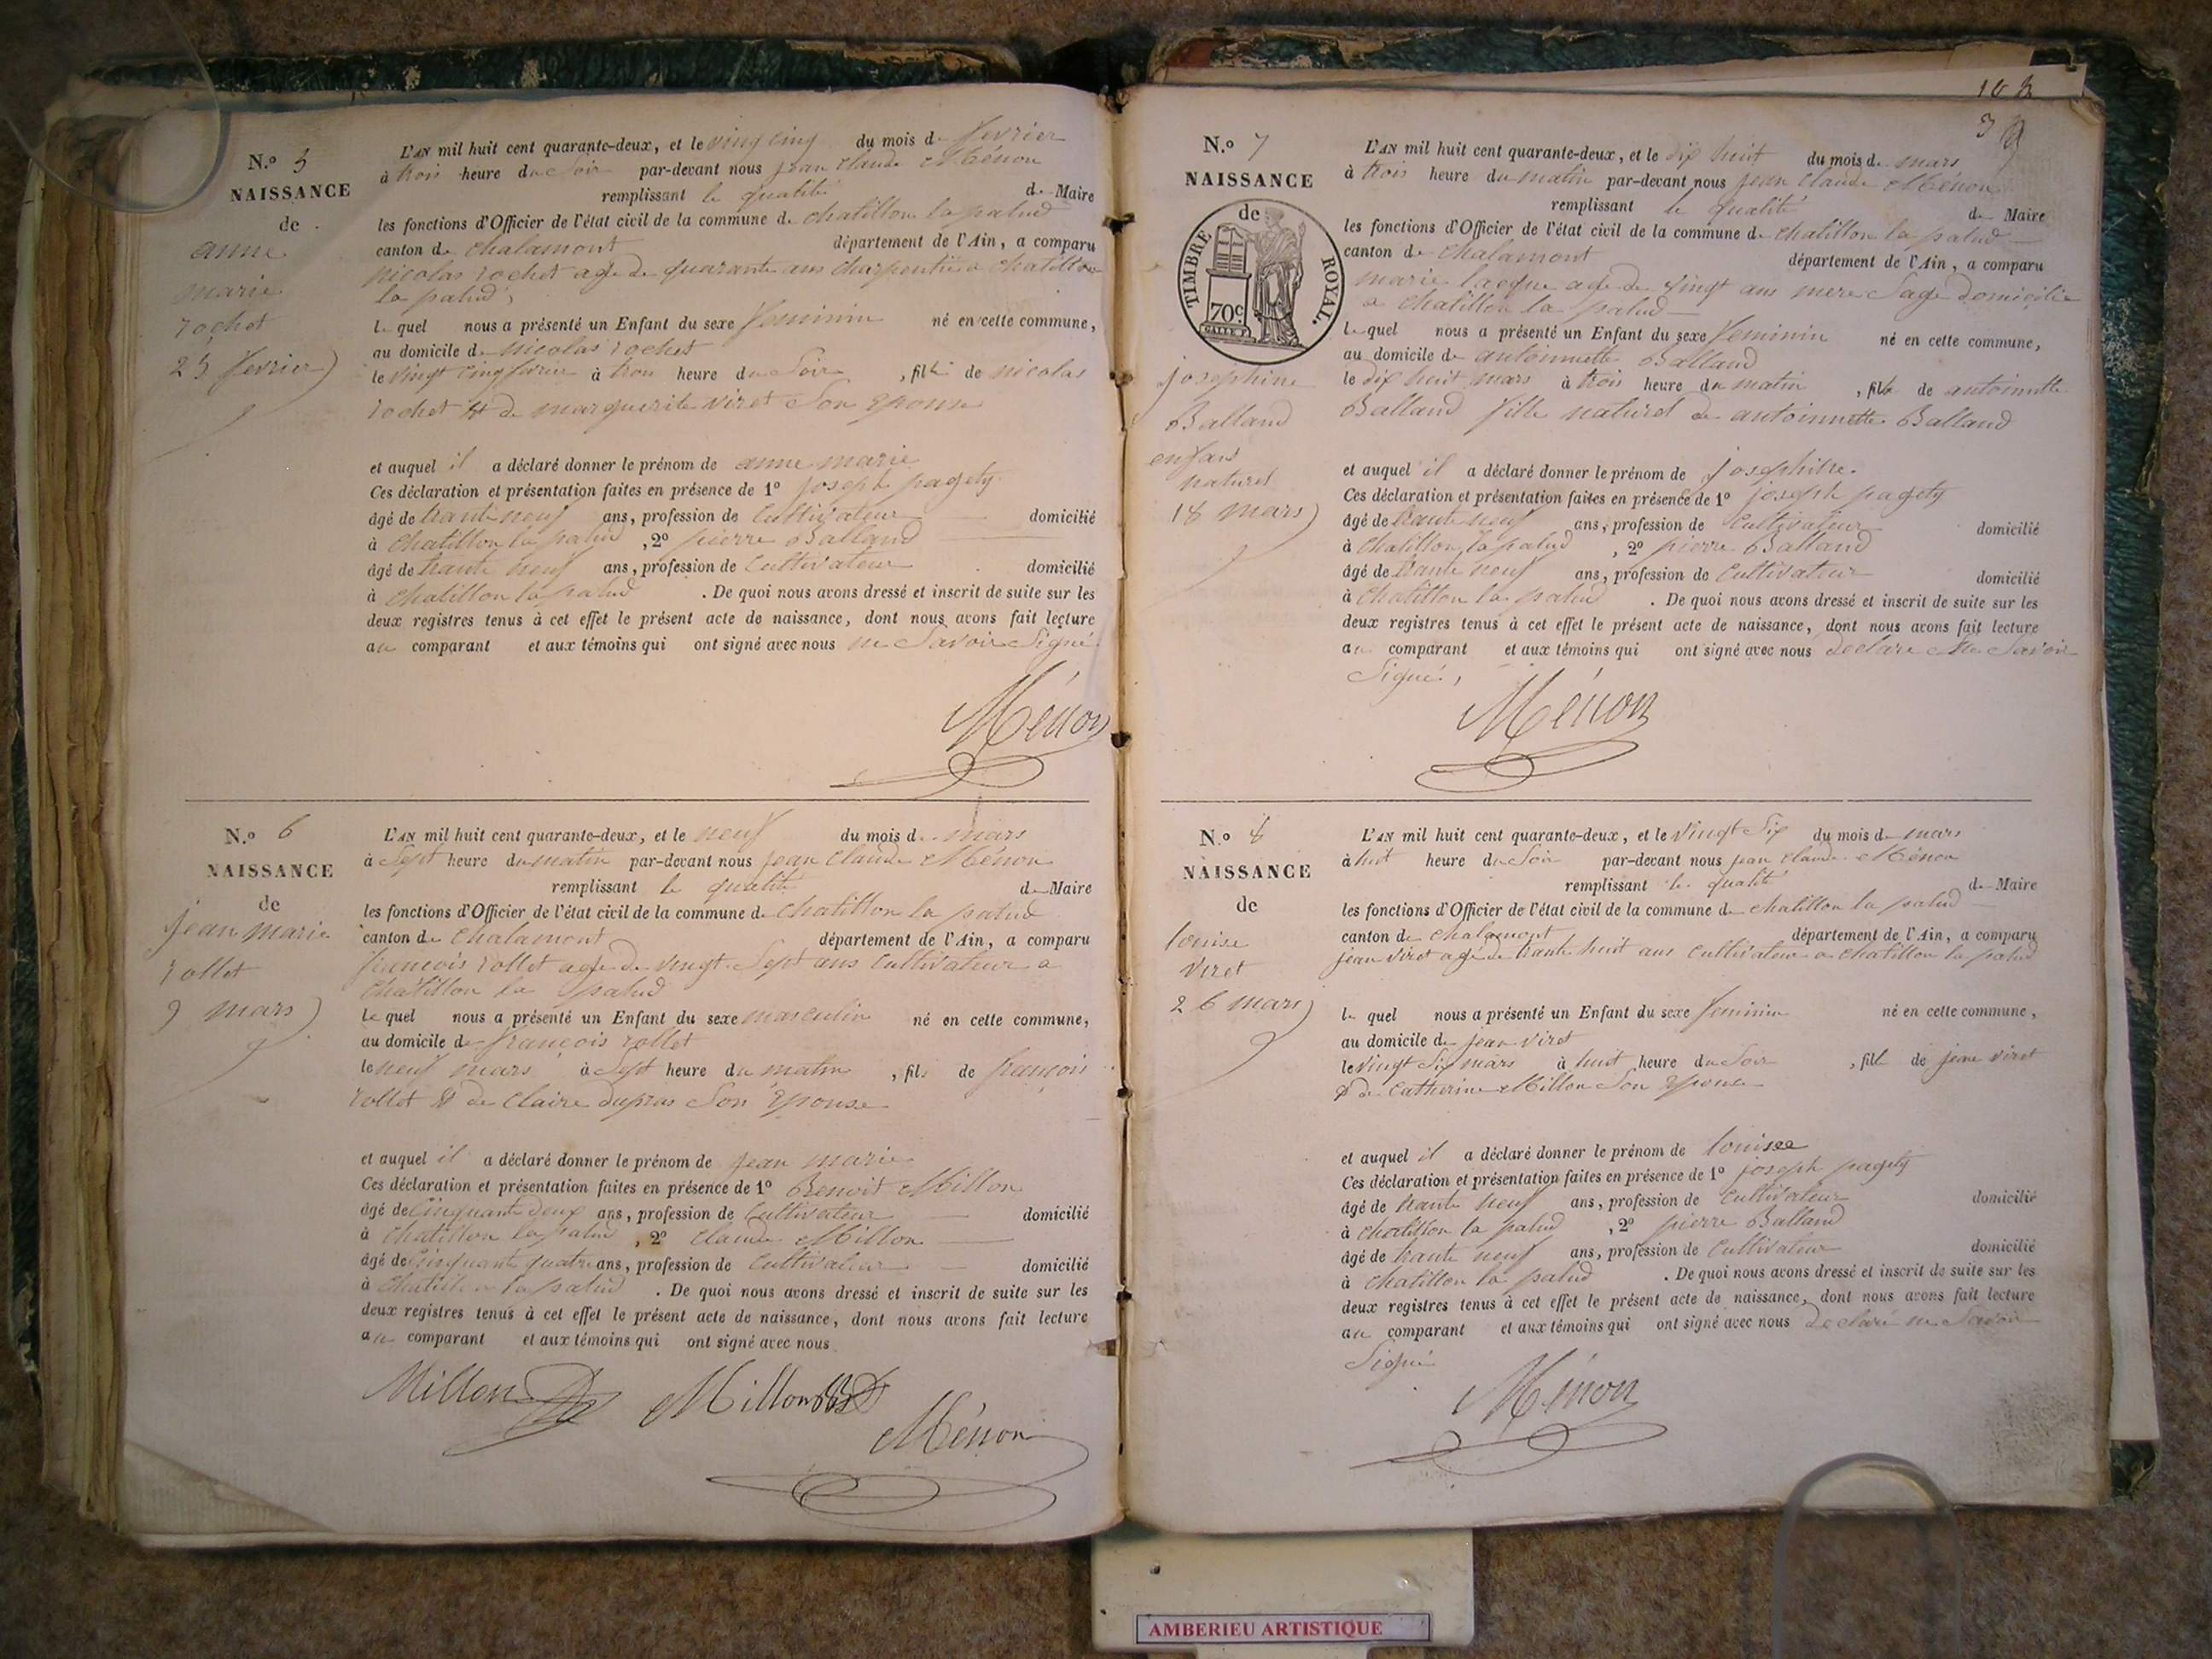 N.º 5
NAISSANCE
de
anne
marie
rochet
25 fevrier
L'AN mil huit cent quarante-deux, et le vingt cinq du mois de fevrier
à trois heure du soir par-devant nous jean claude Ménon
remplissant le qualité de Maire
les fonctions d'Officier de l'état civil de la commune de chatillon la palud
canton de chalamont département de l'Ain, a comparu
nicolas rochet age de quarante ans charpentier a chatillon
la palud,
le quel nous a présenté un Enfant du sexe feminin né en cette commune,
au domicile de nicolas rochet
le vingt cinq fevrier à trois heure du soir, fille de nicolas
rochet et de marguerite viret son epouse
et auquel il a déclaré donner le prénom de anne marie
Ces déclaration et présentation faites en présence de 1º joseph pagety
âgé de trante neuf ans, profession de cultivateur domicilié
à chatillon la palud, 2º pierre Balland
âgé de trante neuf ans, profession de cultivateur domicilié
à chatillon la palud. De quoi nous avons dressé et inscrit de suite sur les
deux registres tenus à cet effet le présent acte de naissance, dont nous avons fait lecture
au comparant et aux témoins qui ont signé avec nous ne savoir signé
Ménon
N.º 6
NAISSANCE
de
jean marie
rollet
9 mars
L'AN mil huit cent quarante-deux, et le neuf du mois de mars
à sept heure du matin par-devant nous jean claude Ménon
remplissant le qualité de Maire
les fonctions d'Officier de l'état civil de la commune de chatillon la palud
canton de chalamont département de l'Ain, a comparu
francois rollet age de vingt sept ans cultivateur a
chatillon la palud
le quel nous a présenté un Enfant du sexe masculin né en cette commune,
au domicile de françois rollet
le neuf mars à sept heure du matin, fils de françois
rollet et de claire dupras son epouse
et auquel il a déclaré donner le prénom de jean marie
Ces déclaration et présentation faites en présence de 1º Benoit Millon
âgé de cinquante deux ans, profession de cultivateur domicilié
à chatillon la palud, 2º claude Millon
âgé de cinquante quatre ans, profession de cultivateur domicilié
à chatillon la palud. De quoi nous avons dressé et inscrit de suite sur les
deux registres tenus à cet effet le présent acte de naissance, dont nous avons fait lecture
au comparant et aux témoins qui ont signé avec nous
Millon Millon
Ménon
N.º 7
NAISSANCE
de
TIMBRE ROYAL.
70c.
josephine
Balland
enfans
naturel
18 mars
L'AN mil huit cent quarante-deux, et le dix huit du mois de mars
à trois heure du matin par-devant nous jean claude Ménon
remplissant le qualité de Maire
les fonctions d'Officier de l'état civil de la commune de chatillon la palud
canton de chalamont département de l'Ain, a comparu
marie lacque age de vingt ans mere sage domicilie
a chatillon la palud
le quel nous a présenté un Enfant du sexe feminin né en cette commune,
au domicile de antoinnette Balland
le dix huit mars à trois heure du matin, fille de antoinnette
Balland fille naturel de antoinnette Balland
et auquel il a déclaré donner le prénom de josephine
Ces déclaration et présentation faites en présence de 1º joseph pagety
âgé de trante neuf ans, profession de cultivateur domicilié
à chatillon la palud, 2º pierre Balland
âgé de trante neuf ans, profession de cultivateur domicilié
à chatillon la palud. De quoi nous avons dressé et inscrit de suite sur les
deux registres tenus à cet effet le présent acte de naissance, dont nous avons fait lecture
au comparant et aux témoins qui ont signé avec nous declare ne savoir
signé,
Ménon
N.º 8
NAISSANCE
de
louise
viret
26 mars
L'AN mil huit cent quarante-deux, et le vingt six du mois de mars
à huit heure du soir par-devant nous jean claude Ménon
remplissant le qualité de Maire
les fonctions d'Officier de l'état civil de la commune de chatillon la palud
canton de chalamont département de l'Ain, a comparu
jean viret agé de trante huit ans cultivateur a chatillon la palud
le quel nous a présenté un Enfant du sexe feminin né en cette commune,
au domicile de jean viret
le vingt six mars à huit heure du soir, fille de jean viret
et de catherine Millon son epouse
et auquel il a déclaré donner le prénom de louise
Ces déclaration et présentation faites en présence de 1º joseph pagety
âgé de trante neuf ans, profession de cultivateur domicilié
à chatillon la palud, 2º pierre Balland
âgé de trante neuf ans, profession de cultivateur domicilié
à chatillon la palud. De quoi nous avons dressé et inscrit de suite sur les
deux registres tenus à cet effet le présent acte de naissance, dont nous avons fait lecture
au comparant et aux témoins qui ont signé avec nous declaré ne savoir
signé
Ménon
AMBERIEU ARTISTIQUE